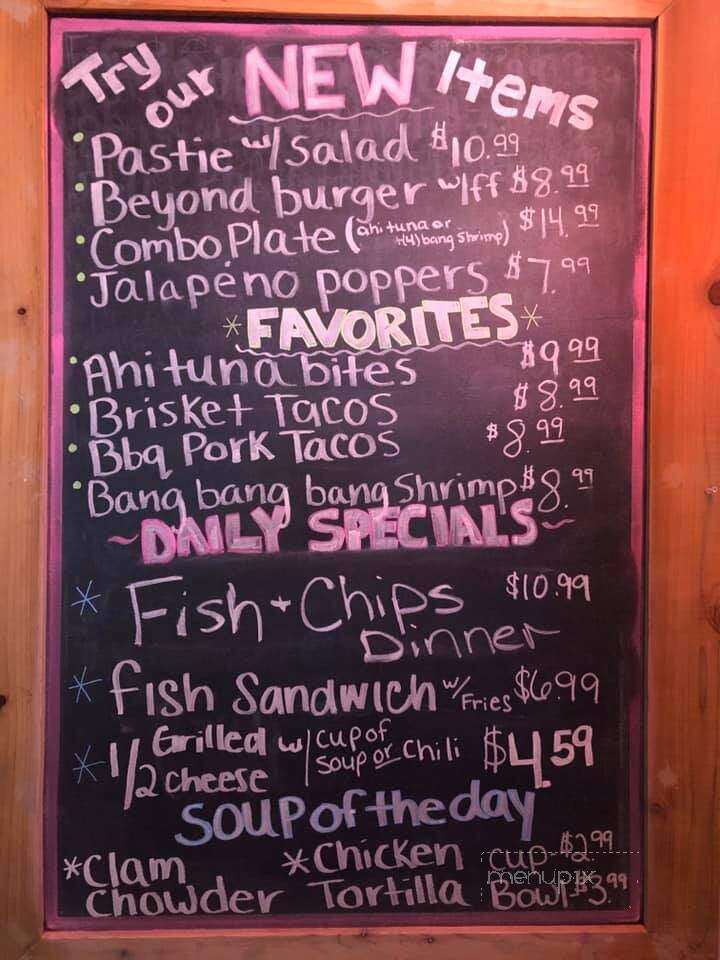 Try our NEW Items
Pastie w/ Salad $10.99
Beyond burger w/ff $8.99
Combo Plate (ahi tuna or (4) bang Shrimp) $14.99
Jalapeno poppers $7.99
*FAVORITES*
Ahi tuna bites $9.99
Brisket Tacos $8.99
Bbq Pork Tacos $8.99
Bang bang bang Shrimp $8.99
~DAILY SPECIALS~
* Fish + Chips $10.99
Dinner
* fish Sandwich w/ Fries $6.99
* 1/2 Grilled cheese w/ cup of soup or Chili $4.59
Soup of the day
*Clam Chowder
*Chicken Tortilla
cup-$2.99
Bowl-$3.99
menupix